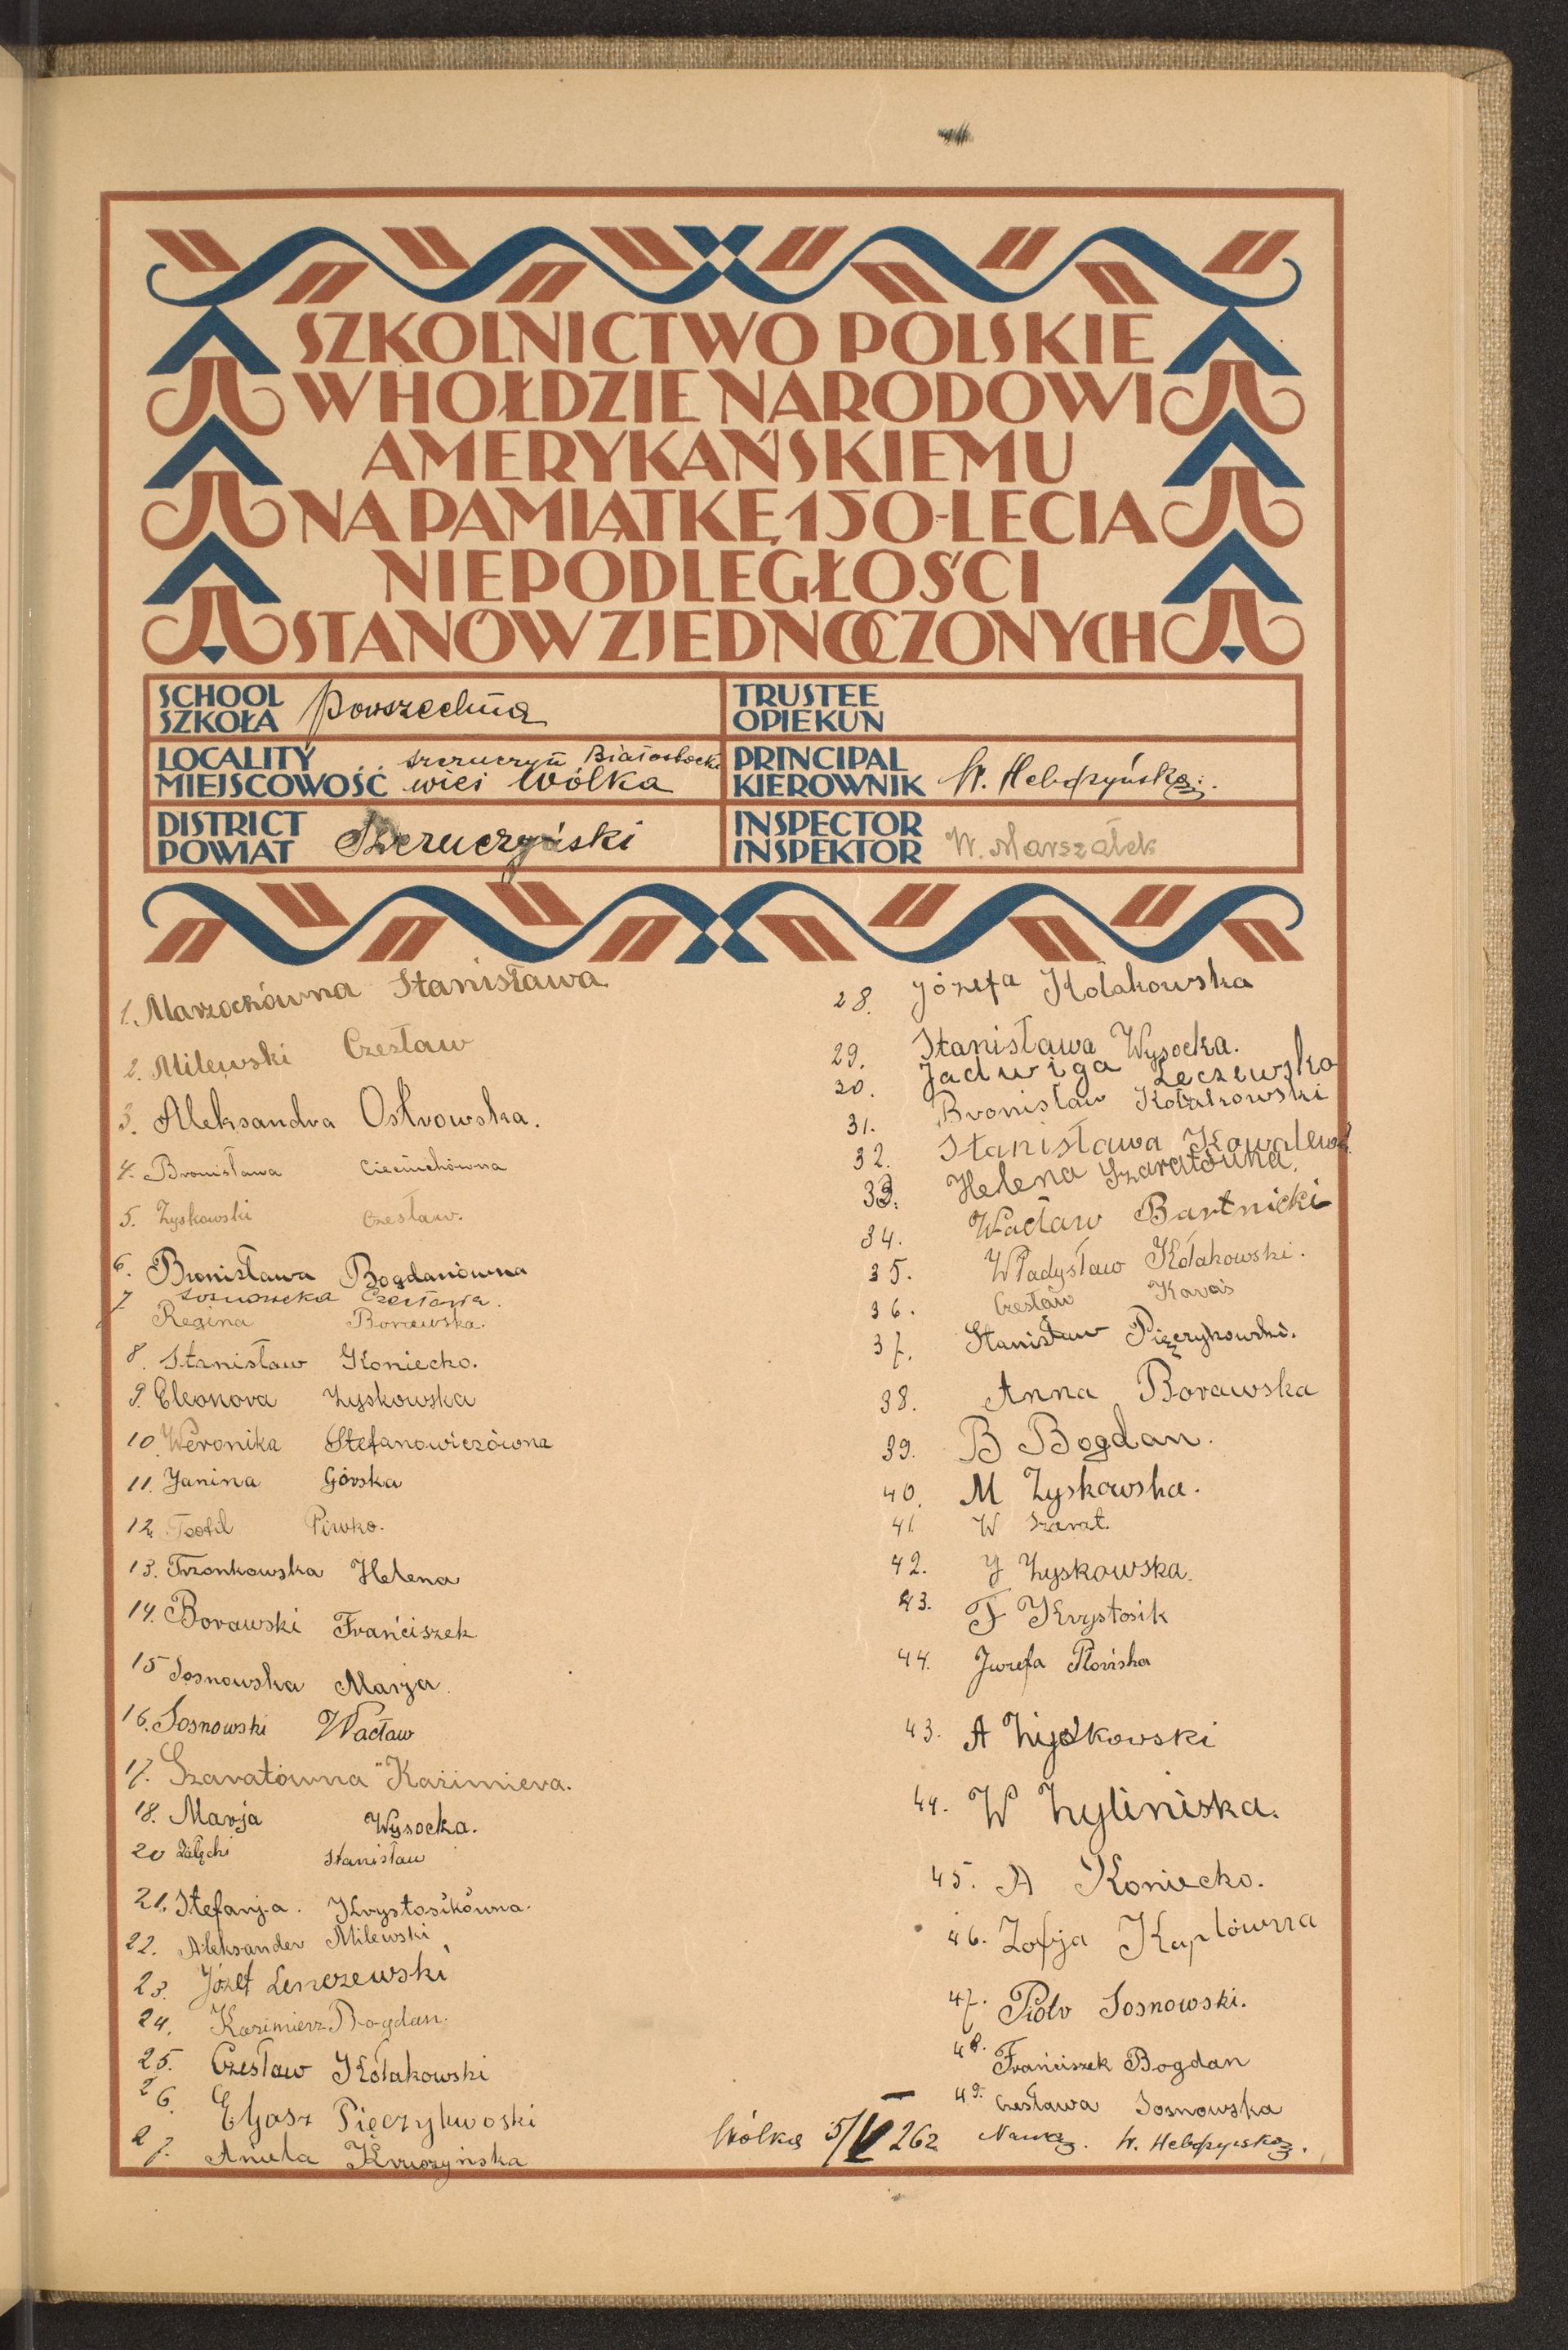 SZKOLNICTWO POLSKIE
W HOŁDZIE NARODOWI
AMERYKAŃSKIEMU
NA PAMIĄTKĘ 150-LECIA
NIEPODLEGŁOŚCI
STANÓW ZJEDNOCZONYCH
SCHOOL
SZKOŁA Powszechna
TRUSTEE
OPIEKUN
LOCALITY Szczuczyn Białostocki
MIEJSCOWOŚĆ wieś Wólka
PRINCIPAL
KIEROWNIK W.
DISTRICT
POWIAT Szczuczyński
INSPECTOR
INSPEKTOR W. Marszałek
1. Marzochówna Stanisława
2. Milewski Czesław
3. Aleksandra Ostrowska.
4. Bronisława
5. Zyskowski Czesław.
6. Bronisława Bogdanówna
7 Sosnowska
Regina Borawska.
8. Stanisław Koniecko.
9. Eleonora Zyskowska
10. Weronika Stefanowiczówna
11. Janina Górska
12. Teofil Piwko.
13. Trzonkowska Helena
14. Borawski Frańciszek
15 Sosnowska Marja.
16. Sosnowski Wacław
17. Szaratówna Kazimiera.
18. Marja Wysocka.
20 Załęcki Stanisław
21. Stefanja. Krystosikówna.
22. Aleksander Milewski
23. Józef Lenczewski
24. Kazimierz Bogdan.
25. Czesław Kołakowski
26. Eljasz Pięczykwoski
27. Aniela
28. Józefa Kołakowska
29. Stanisława Wysocka.
30. Jadwiga Lęczewska
31. Bronisław Kołakowski
32. Stanisława
33. Helena Szaratówna.
34. Wacław Bartnicki
35. Władysław Kołakowski.
36. Czesław Karaś
37. Stanisław Pięczykowski.
38. Anna Borawska
39. B Bogdan.
40. M Zyskowska.
41. W Szarat.
42. J Zyskowska.
43. F Krystosik
44. Juzefa
43. A Zyskowski
44. W Zyliniska.
45. A Koniecko.
46. Zofja Kaplówna
47. Piotr Sosnowski.
48. Frańciszek Bogdan
49. Czesława Sosnowska
Wólka 5/V 262 W.